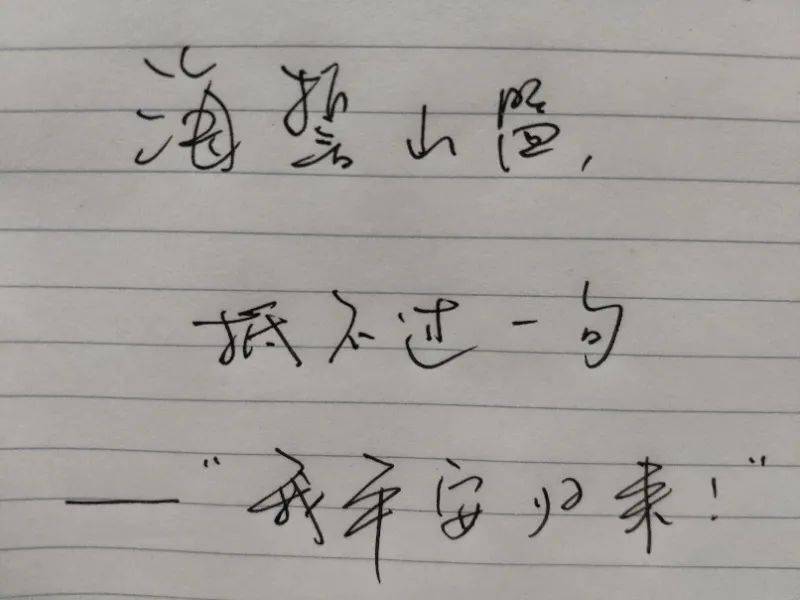 海誓山盟,
抵不过一句
——“我平安归来!”